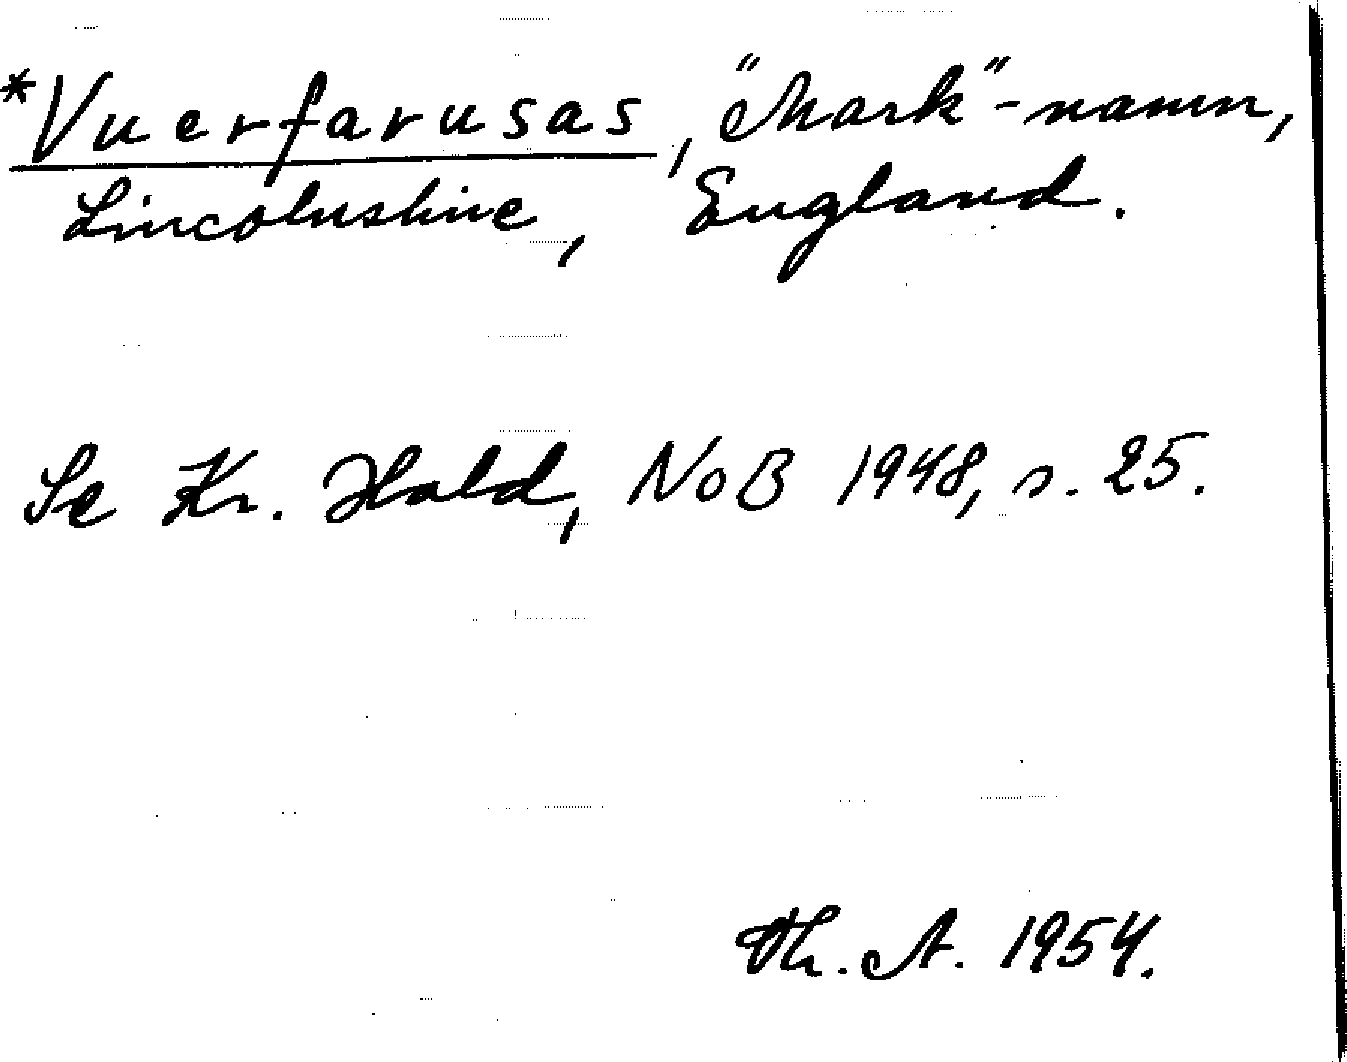 *Vuerfarusas, "Mark"-namn,
Lincolnshire, England.
Se Kr. Hald, NoB 1948, s. 25.
Th. A. 1954.